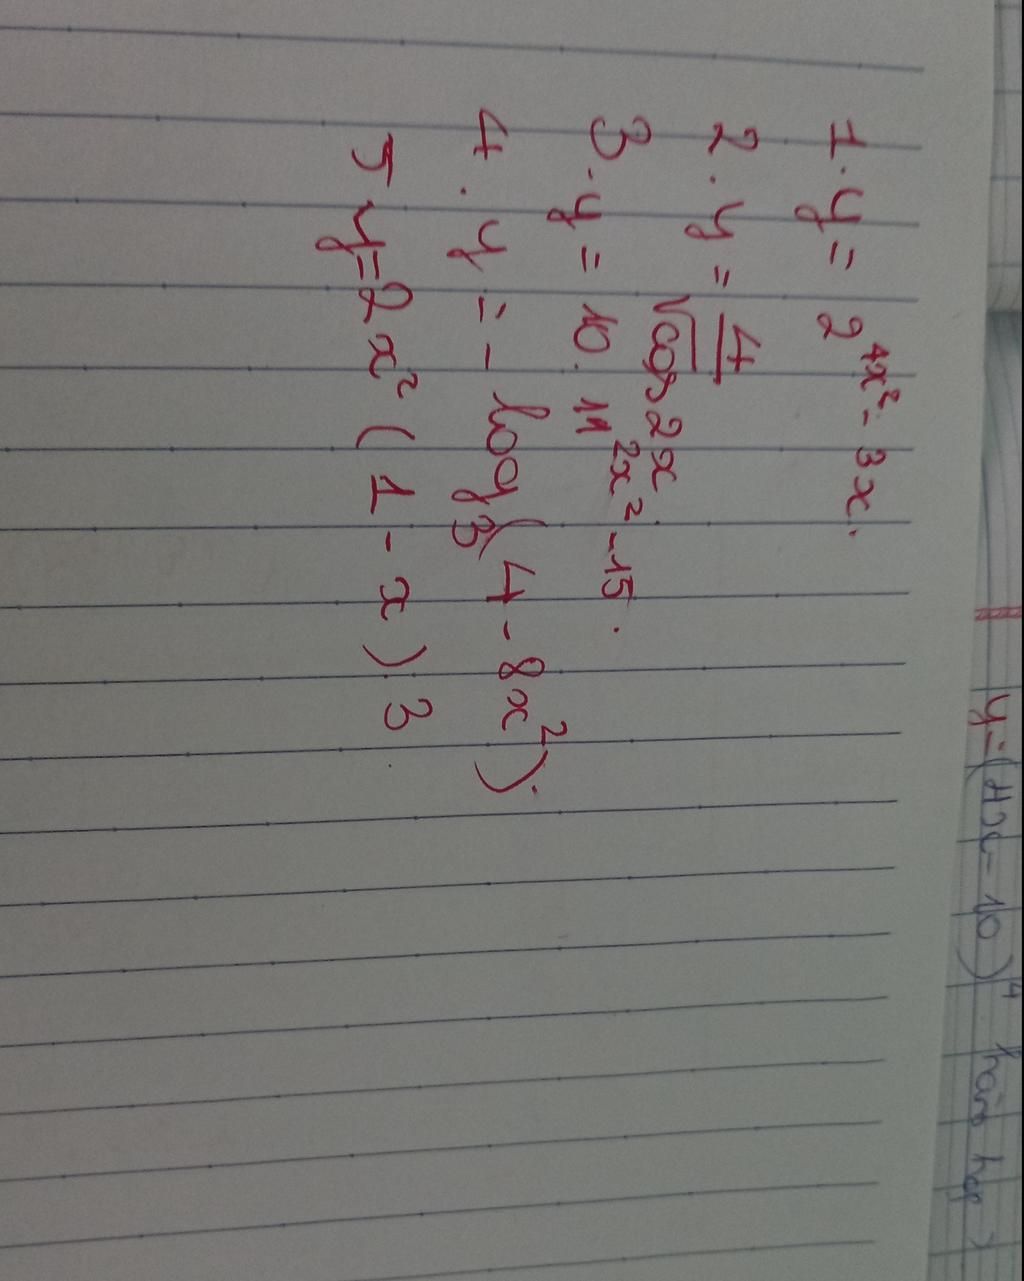 1. y = 2^{4x² - 3x}.
2. y = \frac{4}{\sqrt{cos 2x}}.
3. y = 10. 11^{2x² - 15}.
4. y = - log₃(4 - 8x²).
5 y = 2x² (1 - x)³
y = (4x - 10)⁴ hàm hợp